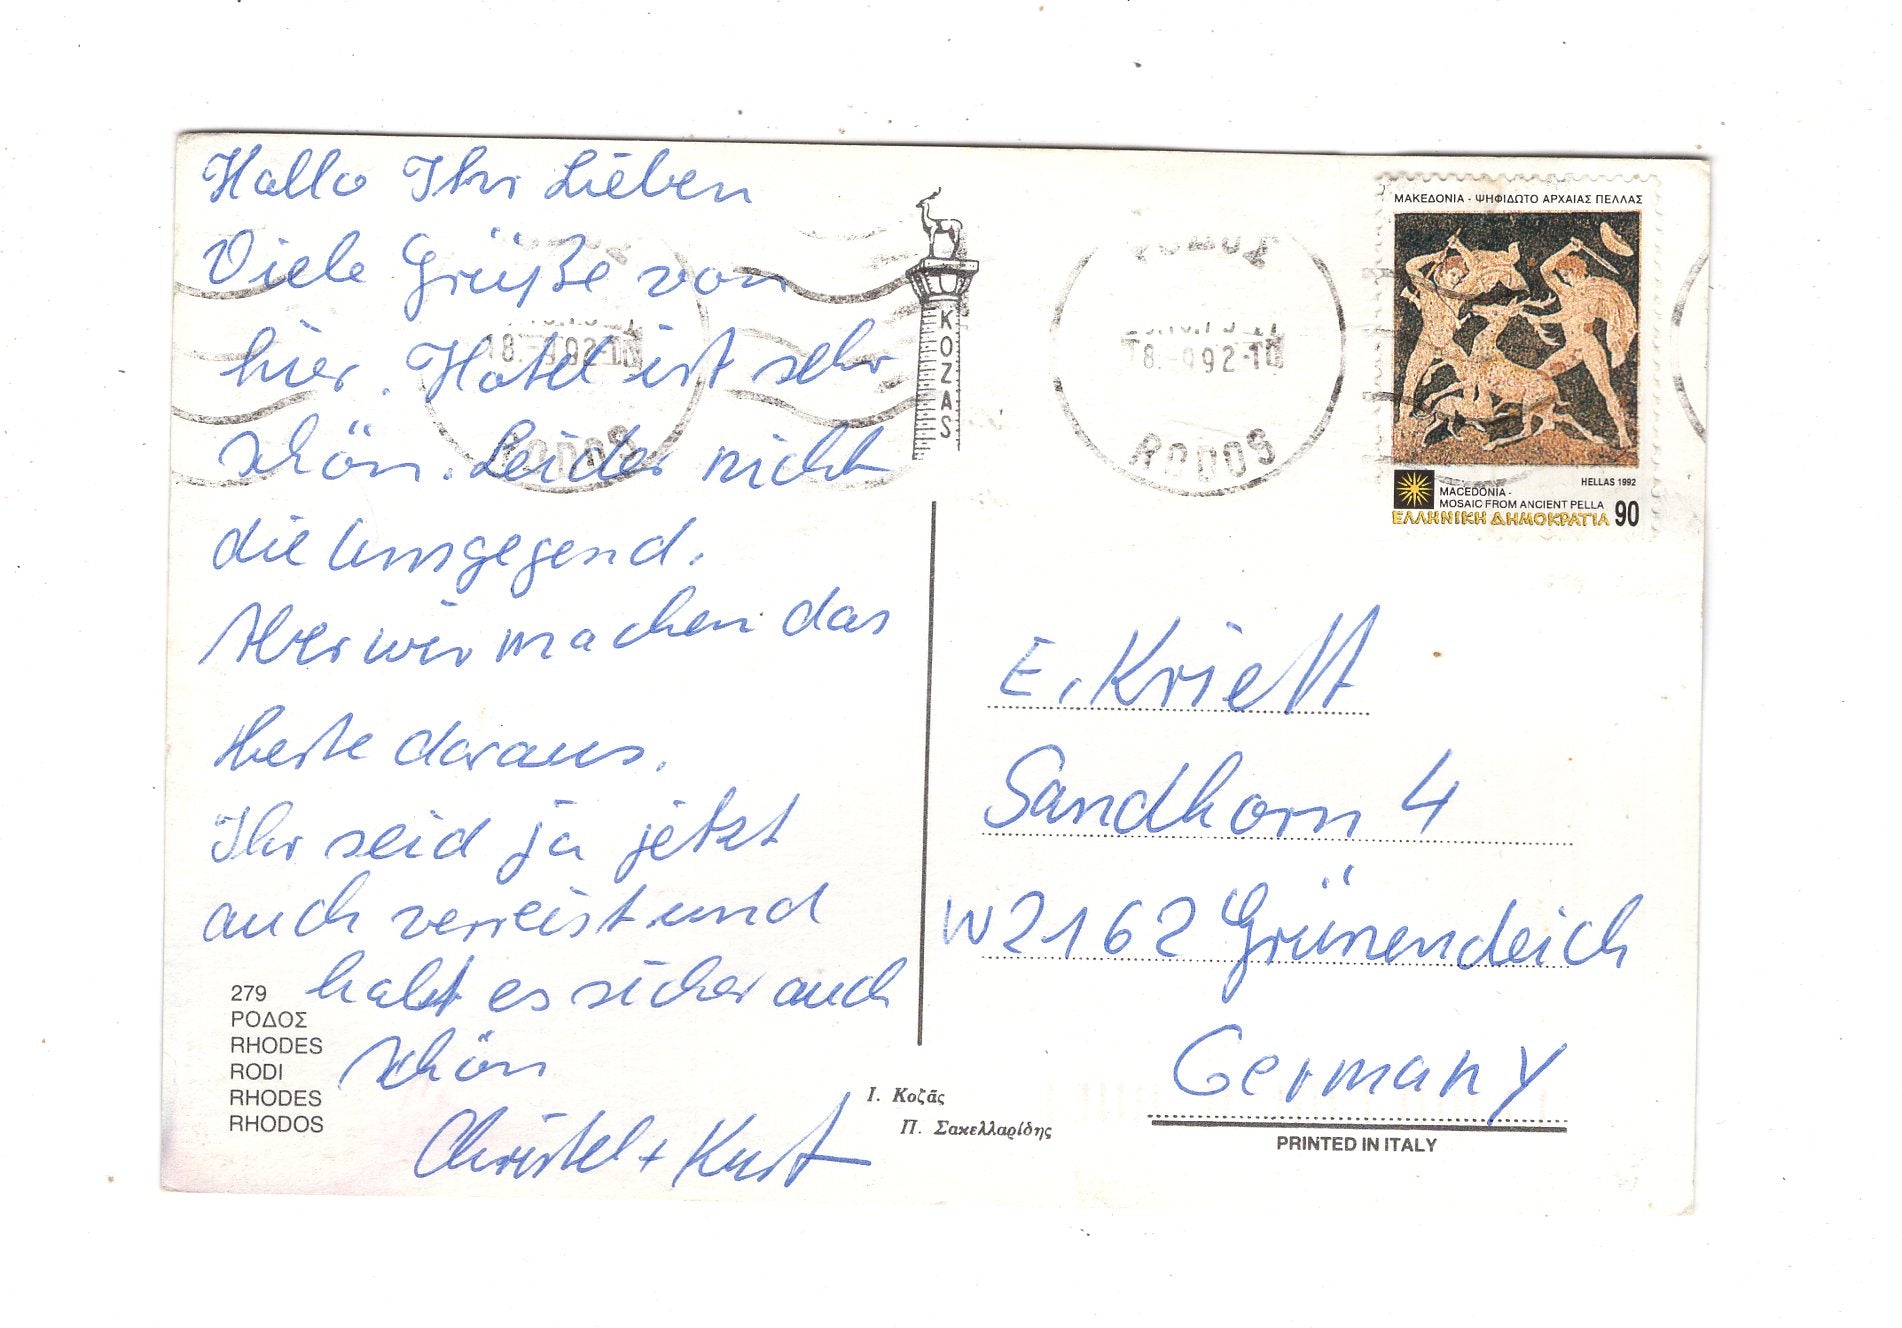 Hallo Ihr Lieben
Viele Grüße von
hier. Hotel ist sehr
schön. Leider nicht
die Umgegend.
Aber wir machen das
Beste daraus.
Ihr seid ja jetzt
auch verreist und
habt es sicher auch
schön
Christel + Kurt
279
ΡΟΔΟΣ
RHODES
RODI
RHODES
RHODOS
Ι. Κοζᾶς
Π. Σακελλαρίδης
KOZAS
18.-992-10
RODOS
18.-992-10
RODOS
ΜΑΚΕΔΟΝΙΑ - ΨΗΦΙΔΩΤΟ ΑΡΧΑΙΑΣ ΠΕΛΛΑΣ
HELLAS 1992
MACEDONIA -
MOSAIC FROM ANCIENT PELLA
ΕΛΛΗΝΙΚΗ ΔΗΜΟΚΡΑΤΙΑ 90
E. Krielt
Sandhorn 4
W 2162 Grünendeich
Germany
PRINTED IN ITALY